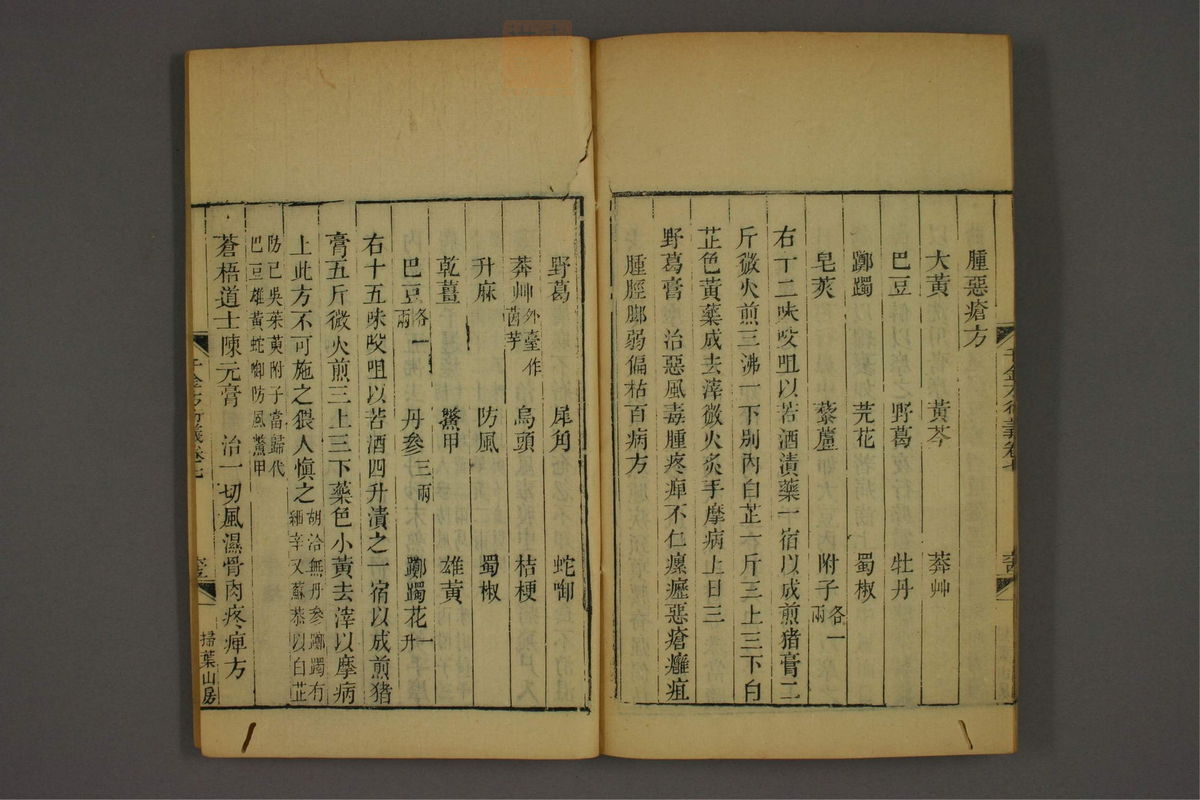 腫惡瘡方
大黃　黃芩　莽艸
巴豆　野葛　牡丹
躑躅　芫花　蜀椒
皂莢　藜蘆　附子各一兩
右丁二味㕮咀以苦酒漬藥一宿以成煎猪膏二
斤微火煎三沸一下別內白芷一斤三上三下白
芷色黃藥成去滓微火炙手摩病上日三
野葛膏　治惡風毒腫疼痺不仁瘰癧惡瘡癰疽
腫脛脚弱偏枯百病方
千金方衍義卷七
野葛　犀角　蛇啣
莽艸外臺作茵芋　烏頭　桔梗
升麻　防風　蜀椒
乾薑　鱉甲　雄黃
巴豆各一兩　丹參三兩　躑躅花一升
右十五味㕮咀以苦酒四升漬之一宿以成煎猪
膏五斤微火煎三上三下藥色小黃去滓以摩病
上此方不可施之猥人愼之胡洽無丹參躑躅有細辛又蘇恭以白芷
防己吳茱萸附子當歸代巴豆雄黃蛇啣防風鱉甲
蒼梧道士陳元膏　治一切風濕骨肉疼痺方
千金方衍義卷七
掃葉山房